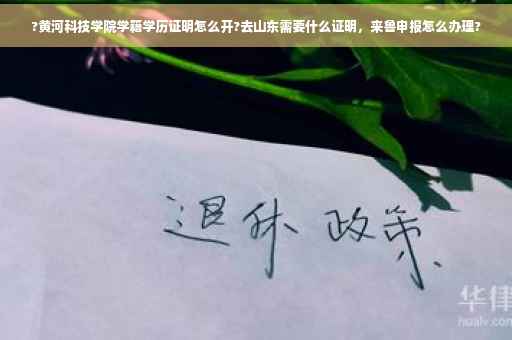 ?黄河科技学院学籍学历证明怎么开?去山东需要什么证明，来鲁申报怎么办理?
退休 政策
华律
hualv.com